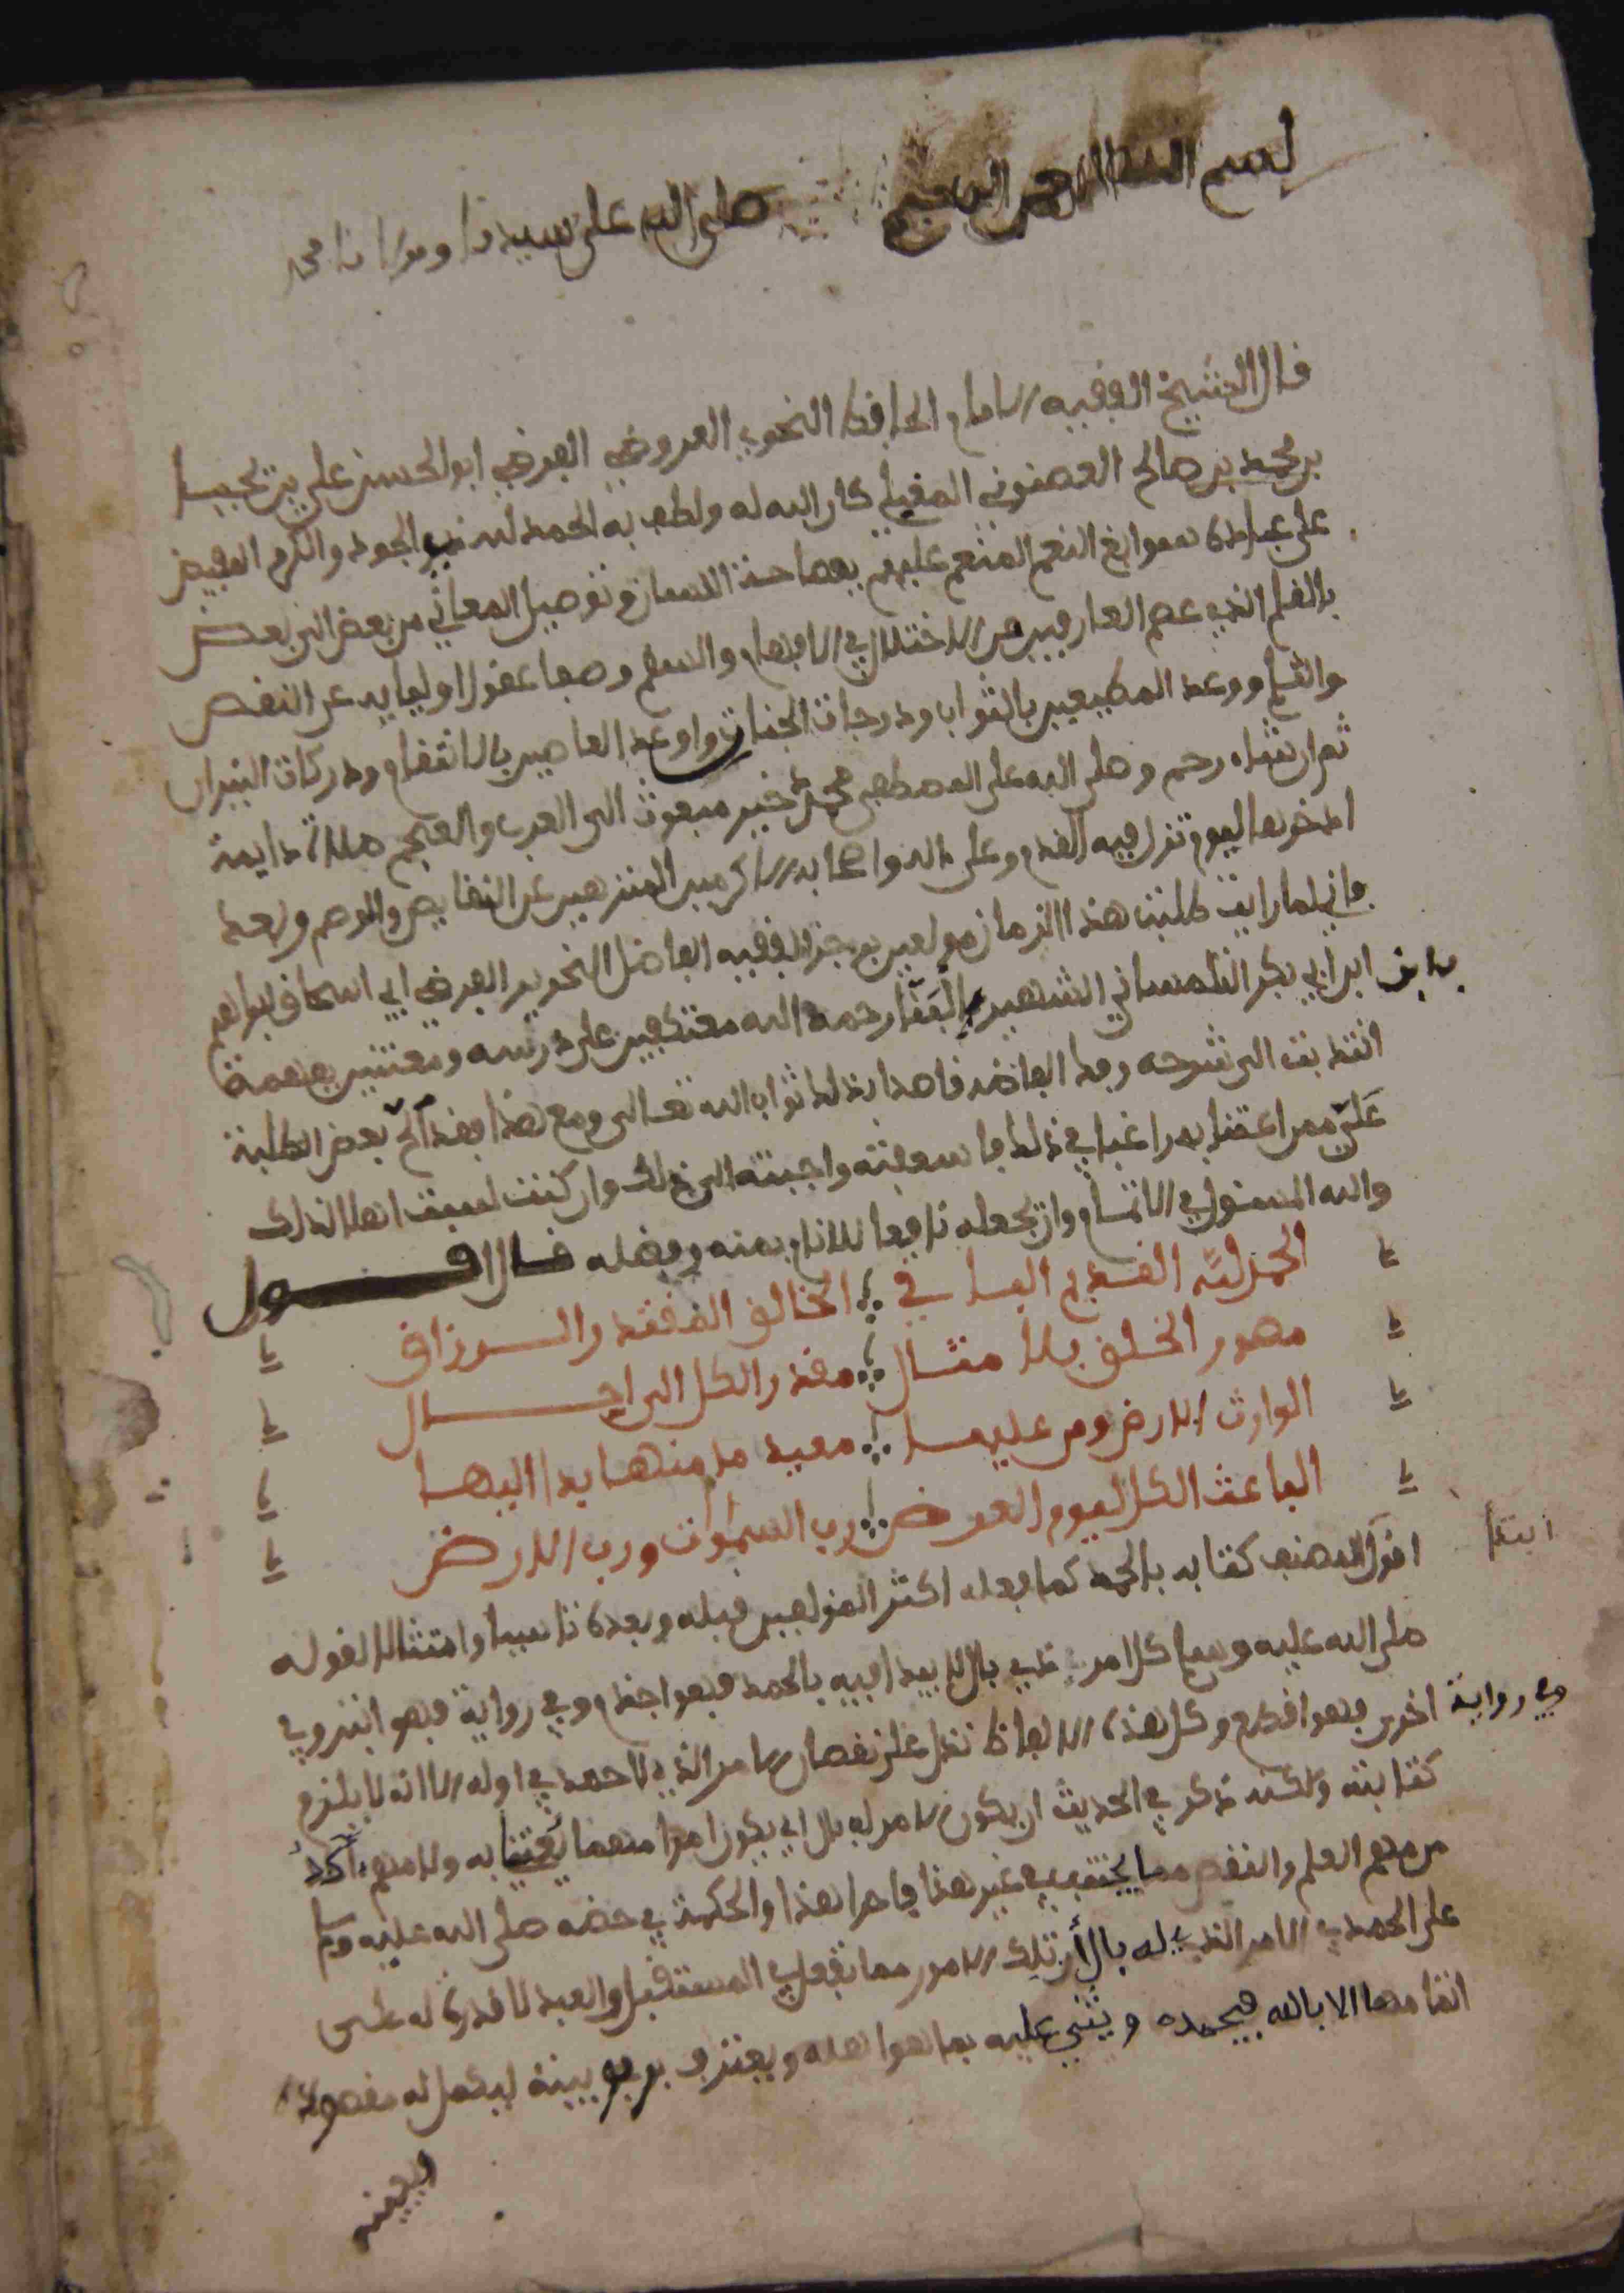 بسم الله الرحمن الرحيم صلى الله على سيدنا ومولانا محمد
قال الشيخ الفقيه الامام الحافظ النحوي العروضي الفرضي ابو الحسن علي بن يحيى
بن محمد بن صالح العصنوني المغيلي كان الله له ولطف به الحمد لله ذي الجود والكرم المفيض
على عباده سوابغ النعم المنعم عليهم بفصاحة اللسان وتوصيل المعاني من بعض الى بعض
بالقلم الذي عصم العارفين من الاختلال في الافهام والسقم وصفا عقول اوليايه عن النقص
والثلم ووعد المطيعين بالثواب ودرجات الجنات واوعد العاصين بالانتقام ودركات النيران
ثم ان شاء رحم وصلى الله على المصطفى محمد خير مبعوث الى العرب والعجم صلاة دايمة
ادخرها ليوم تزل فيه القدم وعلى ءاله واصحابه الاكرمين المنزهين عن النقايص والوصم وبعد
فاني لما رايت طلبة هذا الزمان مولعين برجز الفقيه الفاضل النحوي الفرضي ابي اسحاق ابراهيم
ابن ابي بكر التلمساني الشهير رحمه الله معتكفين على درسه ومعتنين بفهمه
انتدبت الى شرحه وفك الفاظه قاصدا بذلك ثواب الله تعالى ومع هذا فقد الح بعض الطلبة
علي ممن اعتنا به راغبا في ذلك فاسعفته واجبته الى ذلك وان كنت لست اهلا لذلك
والله المسئول في الاتمام وان يجعله نافعا للانام بمنه وفضله قال اقول
الحمد لله القديم الباقي الخالق المقتدر الرزاق
مصور الخلق بلا مثال مقدر الكل الى اجال
الوارث الارض ومن عليها معيد ما منها بدا اليها
الباعث الكل ليوم العرض رب السموات ورب الارض
ابتدا
اقول المصنف كتابه بالحمد كما فعله اكثر المولفين قبله وبعده تاسيا وامتثالا لقوله
صلى الله عليه وسلم كل امر ذي بال لا يبدا فيه بالحمد فهو اجذم وفي رواية فهو ابتر وفي
وفي رواية اخرى فهو اقطع وكل هذه الالفاظ تدل على نقصان الامر الذي لا حمد في اوله الا انه لا يلزم
كتابته ولكنه ذكر في الحديث ان يكون الامر له بال اي يكون امرا مهما يعتنا به ولا مهم ءاكد
من مهم العلم والنقص مما يجتنب في غير هذا فاحرا هذا والحكمة في حضه صلى الله عليه وسلم
على الحمد في الامر الذي له بال أن تلك الامور مما تفعل في المستقبل والعبد لا قدرة له على
اتمامها الا بالله فيحمده ويثني عليه بما هو اهله ويعترف بربوبيته ليكمل له مقصوده
ويعينه